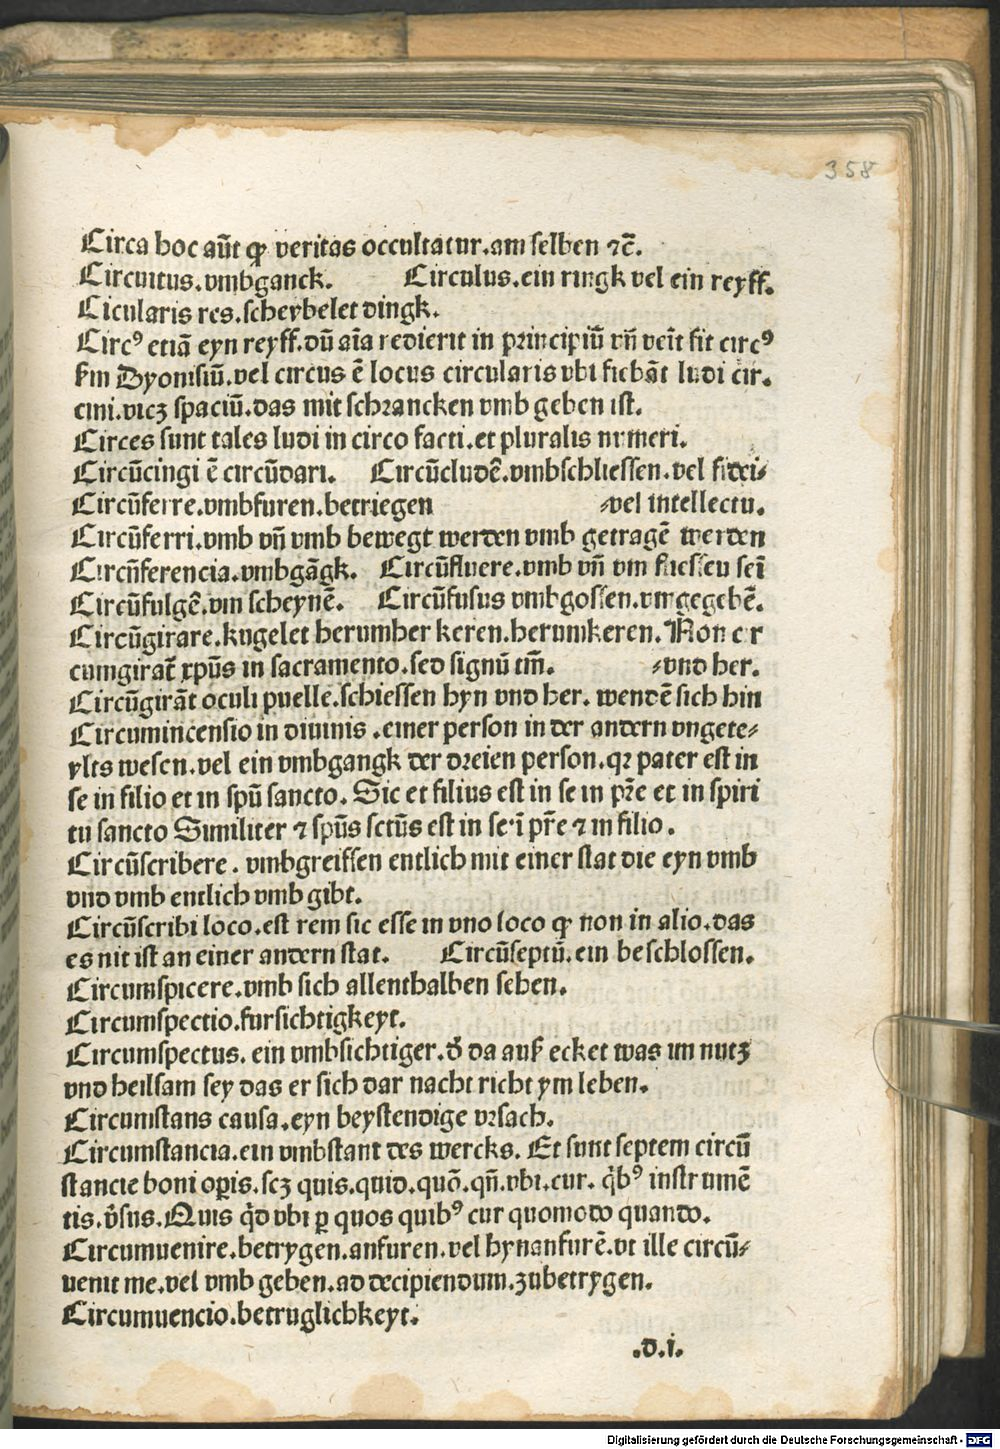 358
Circa hoc aūt ꝙ veritas occultatur.am selben ⁊c̄.
Circuitus.vmbganck. Circulus.ein ringk vel ein reyff.
Cicularis res.scheybelet dingk.
Circꝰ etiā eyn reyff.dū aīa redierit in principiū vñ veīt fit circꝰ
ẜm Dyonisiū.vel circus ē locus circularis vbi fiebāt ludi cir.
cini.vicꝫ spaciū.das mit schrancken vmb geben ist.
Circes sunt tales ludi in circo facti.et pluralis numeri.
Circūcingi ē circūdari. Circūcludē.vmbschliessen.vel
Circūferre.vmbfuren.betriegen ⸗vel intellectu.
Circūferri.vmb vñ vmb bewegt werden vmb getragē werden
Circūferencia.vmbgāgk. Circūfluere.vmb vñ vm fliessen seī
Circūfulgē.vm scheynē. Circūfusus vmbgossen.vmgegebē.
Circūgirare.kugelet herumher keren.herumkeren.Non cir
cumgirat̄ xp̄us in sacramento.sed signū tm̄. ⸗vnd her.
Circūgirāt oculi puelle.schiessen hyn vnd her. wendē sich hin
Circumincensio in diuinis .einer person in der andern vngete⸗
ylts wesen.vel ein vmbgangk der dreien person.qꝛ pater est in
se in filio et in spū sancto. Sic et filius est in se in pr̄e et in spiri
tu sancto Similiter ⁊ spūs sctūs est in se.ī pr̄e ⁊ in filio.
Circūscribere. vmbgreiffen entlich mit einer stat die eyn vmb
vnd vmb entlich vmb gibt.
Circūscribi loco.est rem sic esse in vno loco ꝙ non in alio.das
es nit ist an einer andern stat. Circūseptū.ein beschlossen.
Circumspicere.vmb sich allenthalben sehen.
Circumspectio.fursichtigkeyt.
Circumspectus. ein vmbsichtiger.d̓ da auß ecket was im nutz
vnd heilsam sey das er sich dar nacht richt ym leben.
Circumstans causa.eyn beystendige vrsach.
Circumstancia.ein vmbstant des wercks. Et sunt septem circū
stancie boni oꝑis.scꝫ quis.quid.quō.qñ.vbi.cur. qͥbꝰ instrumē
tis.v̓sus.Quis qͥd vbi ꝑ quos quibꝰ cur quomodo quando.
Circumuenire.betrygen.anfuren.vel hynanfurē.vt ille circū⸗
uenit me.vel vmb geben.ad decipiendum.zubetrygen.
Circumuencio.betruglichkeyt.
.d.i.
Digitalisierung gefördert durch die Deutsche Forschungsgemeinschaft - DFG